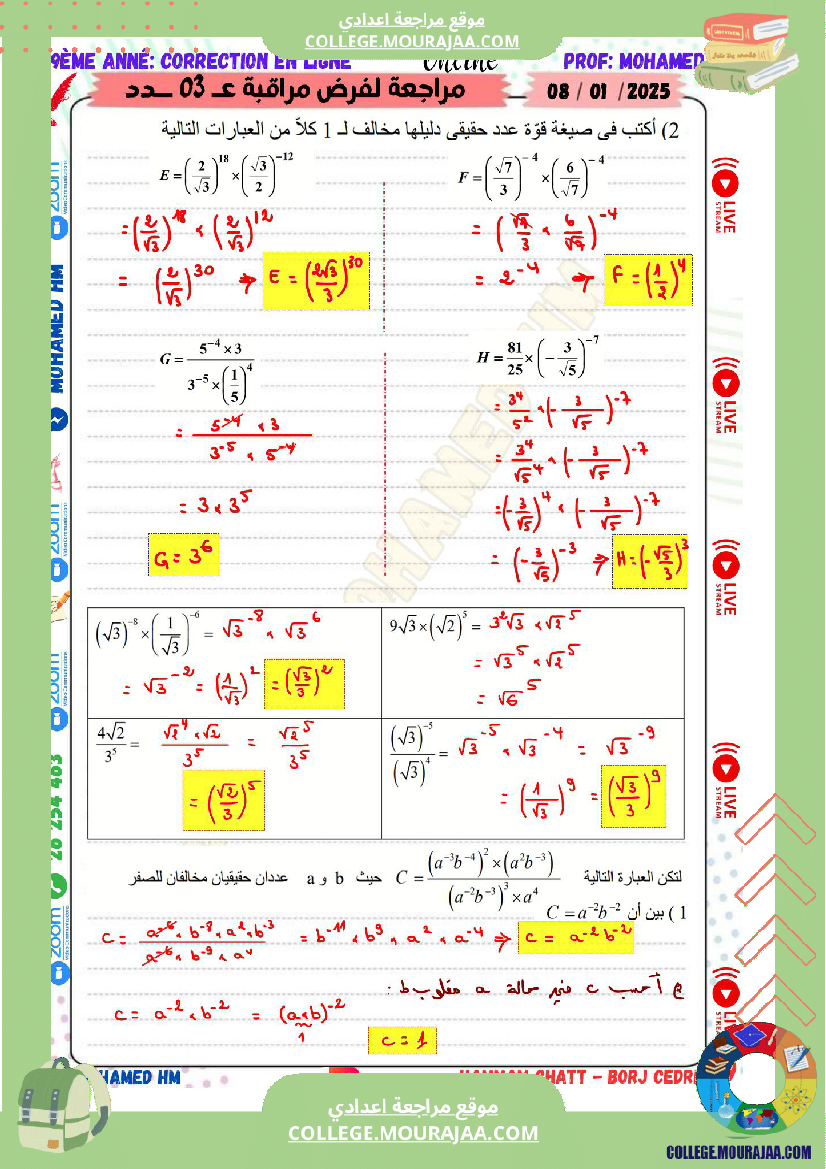 موقع مراجعة اعدادي
COLLEGE.MOURAJAA.COM
9ÈME ANNÉ: CORRECTION EN LIGNE
Online
PROF: MOHAMED
مراجعة لفرض مراقبة عـ 03 ـدد
08 / 01 /2025
2) أكتب في صيغة قوّة عدد حقيقي دليلها مخالف لـ 1 كلاّ من العبارات التالية
E = (2/√3)^18 × (√3/2)^−12
= (2/√3)^18 × (2/√3)^12
= (2/√3)^30 ⇒ E = (2√3/3)^30
F = (√7/3)^−4 × (6/√7)^−4
= (√7/3 × 6/√7)^−4
= 2^−4 ⇒ F = (1/2)^4
G = (5^−4 × 3)/(3^−5 × (1/5)^4)
= (5^−4 × 3)/(3^−5 × 5^−4)
= 3 × 3^5
G = 3^6
H = 81/25 × (−3/√5)^−7
= 3^4/5^2 × (−3/√5)^−7
= 3^4/√5^4 × (−3/√5)^−7
= (−3/√5)^4 × (−3/√5)^−7
= (−3/√5)^−3 ⇒ H = (−√5/3)^3
(√3)^−8 × (1/√3)^−6 = √3^−8 × √3^6
= √3^−2 = (1/√3)^2 = (√3/3)^2
9√3 × (√2)^5 = 3^2√3 × √2^5
= √3^5 × √2^5
= √6^5
4√2/3^5 = (√2^4 × √2)/3^5 = √2^5/3^5
= (√2/3)^5
(√3)^−5/(√3)^4 = √3^−5 × √3^−4 = √3^−9
= (1/√3)^9 = (√3/3)^9
لتكن العبارة التالية C = ((a^−3b^−4)^2 × (a^2b^−3))/((a^−2b^−3)^3 × a^4) حيث b و a عددان حقيقيان مخالفان للصفر
1 ) بين أن C = a^−2b^−2
C = (a^−6 × b^−8 × a^2 × b^−3)/(a^−6 × b^−9 × a^4) = b^−11 × b^9 × a^2 × a^−4 ⇒ C = a^−2 b^−2
أحسب C في حالة a مقلوب b :
C = a^−2 × b^−2 = (a×b)^−2
1
C = 1
zoom
Video Communications
MOHAMED HM
zoom
zoom
Video Communications
28 254 483
zoom
Video Communications
LIVE
STREAM
LIVE
STREAM
LIVE
STREAM
LIVE
STREAM
LIVE
HAMED HM
HAMMAM CHATT - BORJ CEDRI
موقع مراجعة اعدادي
COLLEGE.MOURAJAA.COM
COLLEGE.MOURAJAA.COM